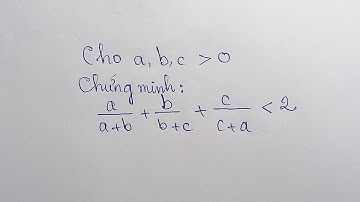 Cho a, b, c > 0
Chứng minh:
a/(a+b) + b/(b+c) + c/(c+a) < 2